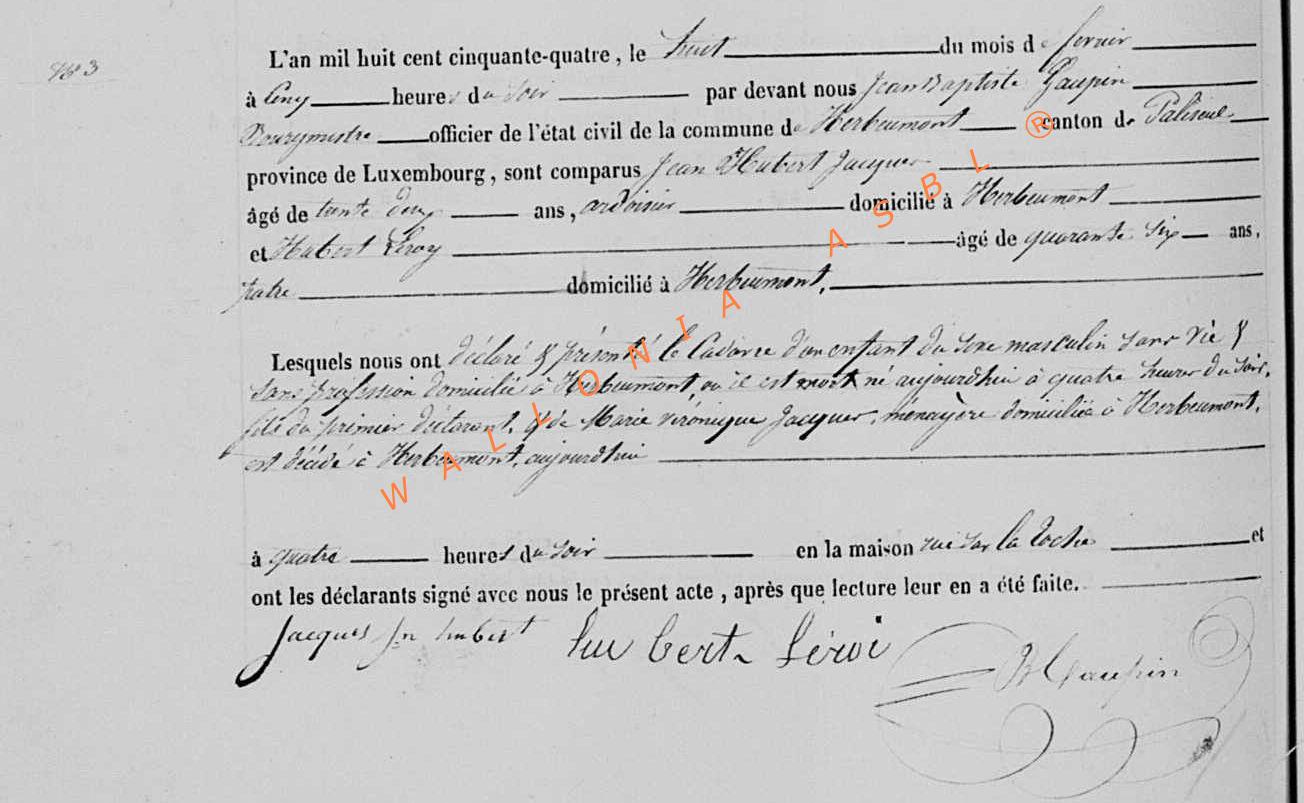 N° 3
L'an mil huit cent cinquante-quatre, le huit du mois de fevrier
à cinq heures du soir par devant nous Jean Baptiste Gaupin
Bourgmestre officier de l'état civil de la commune de Herbeumont canton de Paliseul
province de Luxembourg, sont comparus Jean Hubert Jacques
âgé de trente deux ans, ardoisier domicilié à Herbeumont
et Hubert Leroy âgé de quarante six ans,
patre domicilié à Herbeumont,
Lesquels nous ont déclaré & présenté le Cadavre d'un enfant du sexe masculin sans vie &
sans profession domicilié à Herbeumont, où il est mort né aujourdhui à quatre heures du soir,
fils du premier déclarant, & de Marie Véronique Jacques, ménagère domiciliée à Herbeumont,
est décédé à Herbeumont, aujourdhui
à quatre heures du soir en la maison rue sur la Roche et
ont les déclarants signé avec nous le présent acte, après que lecture leur en a été faite.
Jacques Jn hubert Hubert Léroi Gaupin
WALLONIA ASBL ®